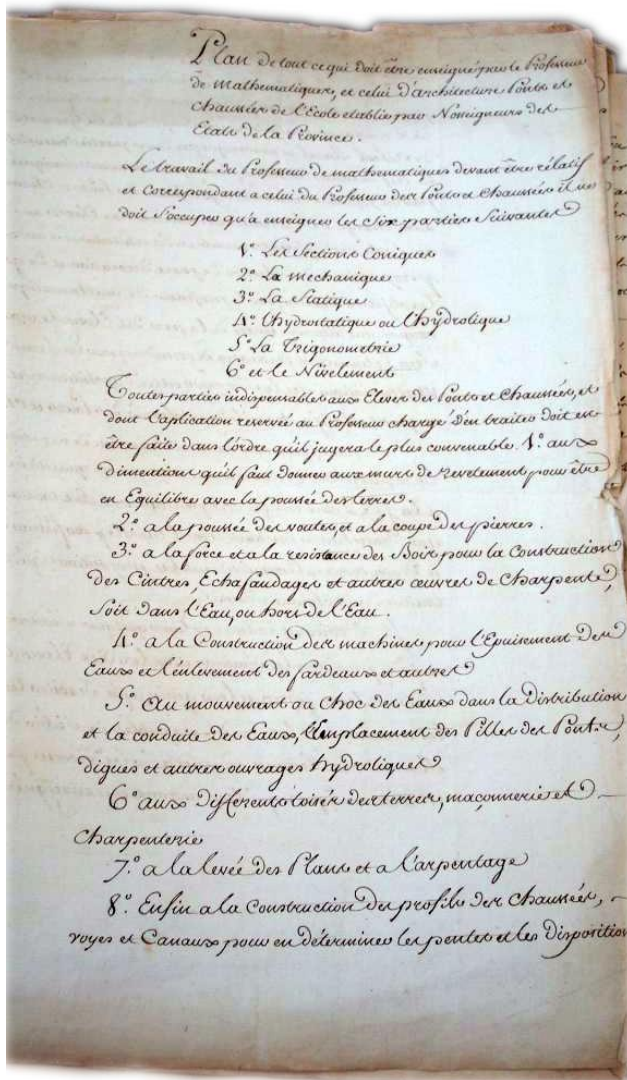 Plan de tout ce qui doit être enseigné par le Professeur
de Mathematiques, et celui d'architecture Ponts et
Chaussées de l'Ecole etablie par Nosseigneurs des
Etats de la Province.
Le travail du Professeur de mathematiques devant être rélatif
et Correspondant a celui du Professeur des Ponts et Chaussées il ne
doit s'occuper qu'a enseigner les Six parties Suivantes
1º. Les Sections Coniques
2º. La Mechanique
3º. La Statique
4º. l'hydrostatique ou l'hydrolique
5º. La Trigonometrie
6º et le Nivelement
Toutes parties indispensables aux Eleves des Ponts et Chaussées, et
dont l'aplication reservée au Professeur chargé d'en traiter doit en
être faite dans l'ordre qu'il jugera le plus convenable. 1º. aux
dimentions qu'il faut donner aux murs de revetement pour être
en Equilibre avec la poussée des terres.
2º. a la poussée des voutes, et a la coupe des pierres.
3º. a la force et a la resistance des Bois pour la Construction
des Cintres, Echafaudages et autres œuvres de Charpente,
Soit dans l'Eau, ou hors de l'Eau.
4º. a la Construction des machines pour l'Epuisement des
Eaux et l'enlevement des fardeaux et autres
5º. Au mouvement ou Choc des Eaux dans la Distribution
et la conduite des Eaux, l'Emplacement des Pilles des Ponts,
digues et autres ouvrages hydroliques
6º aux differents toisés des terres, maçonnerie et
Charpenterie
7º. a la levée des Plans et a l'arpentage
8º. Enfin a la Construction des profils des Chaussées,
voyes et Canaux pour en déterminer les pentes et les Disposition